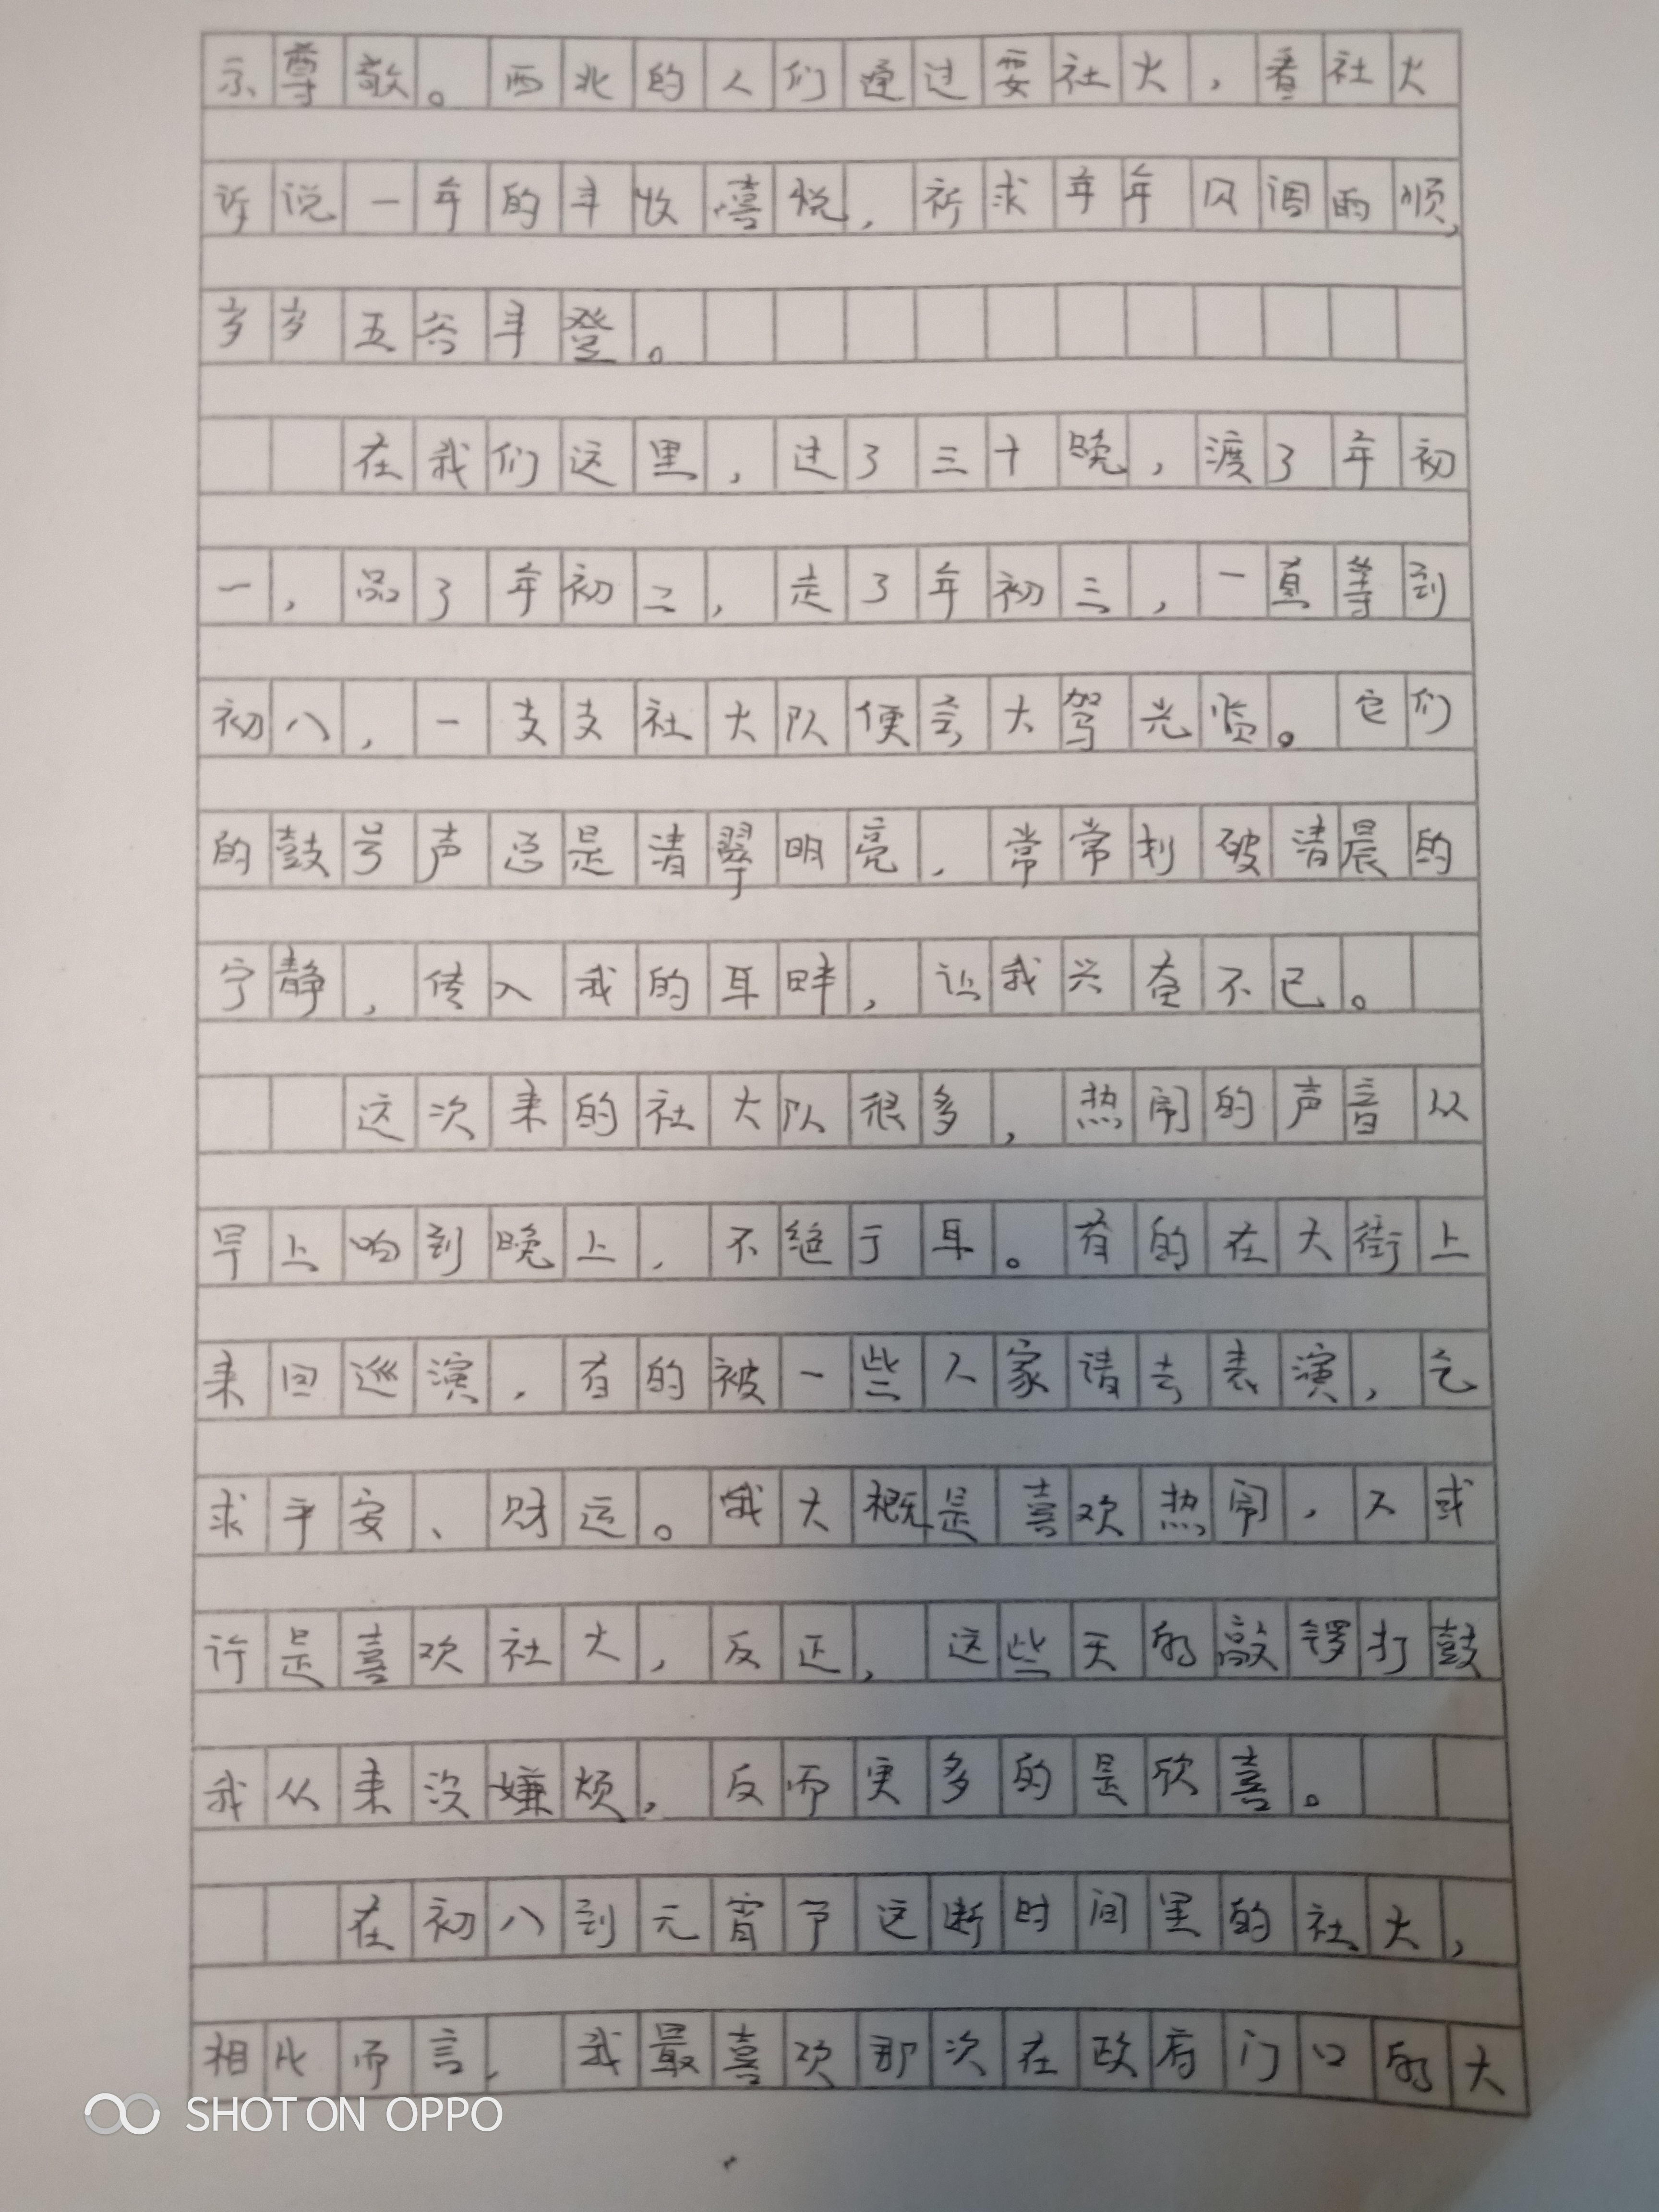 示尊敬。西北的人们通过耍社火，看社火
诉说一年的丰收喜悦，祈求年年风调雨顺，
岁岁五谷丰登。
在我们这里，过了三十晚，渡了年初
一，品了年初二，走了年初三，一直等到
初八，一支支社火队便会大驾光临。它们
的鼓号声总是清翠明亮，常常划破清晨的
宁静，传入我的耳畔，让我兴奋不已。
这次来的社火队很多，热闹的声音从
早上响到晚上，不绝于耳。有的在大街上
来回巡演，有的被一些人家请去表演，乞
求平安、财运。我大概是喜欢热闹，又或
许是喜欢社火，反正，这些天的敲锣打鼓
我从来没嫌烦，反而更多的是欣喜。
在初八到元宵节这断时间里的社火，
相比而言，我最喜欢那次在政府门口的大
SHOT ON OPPO